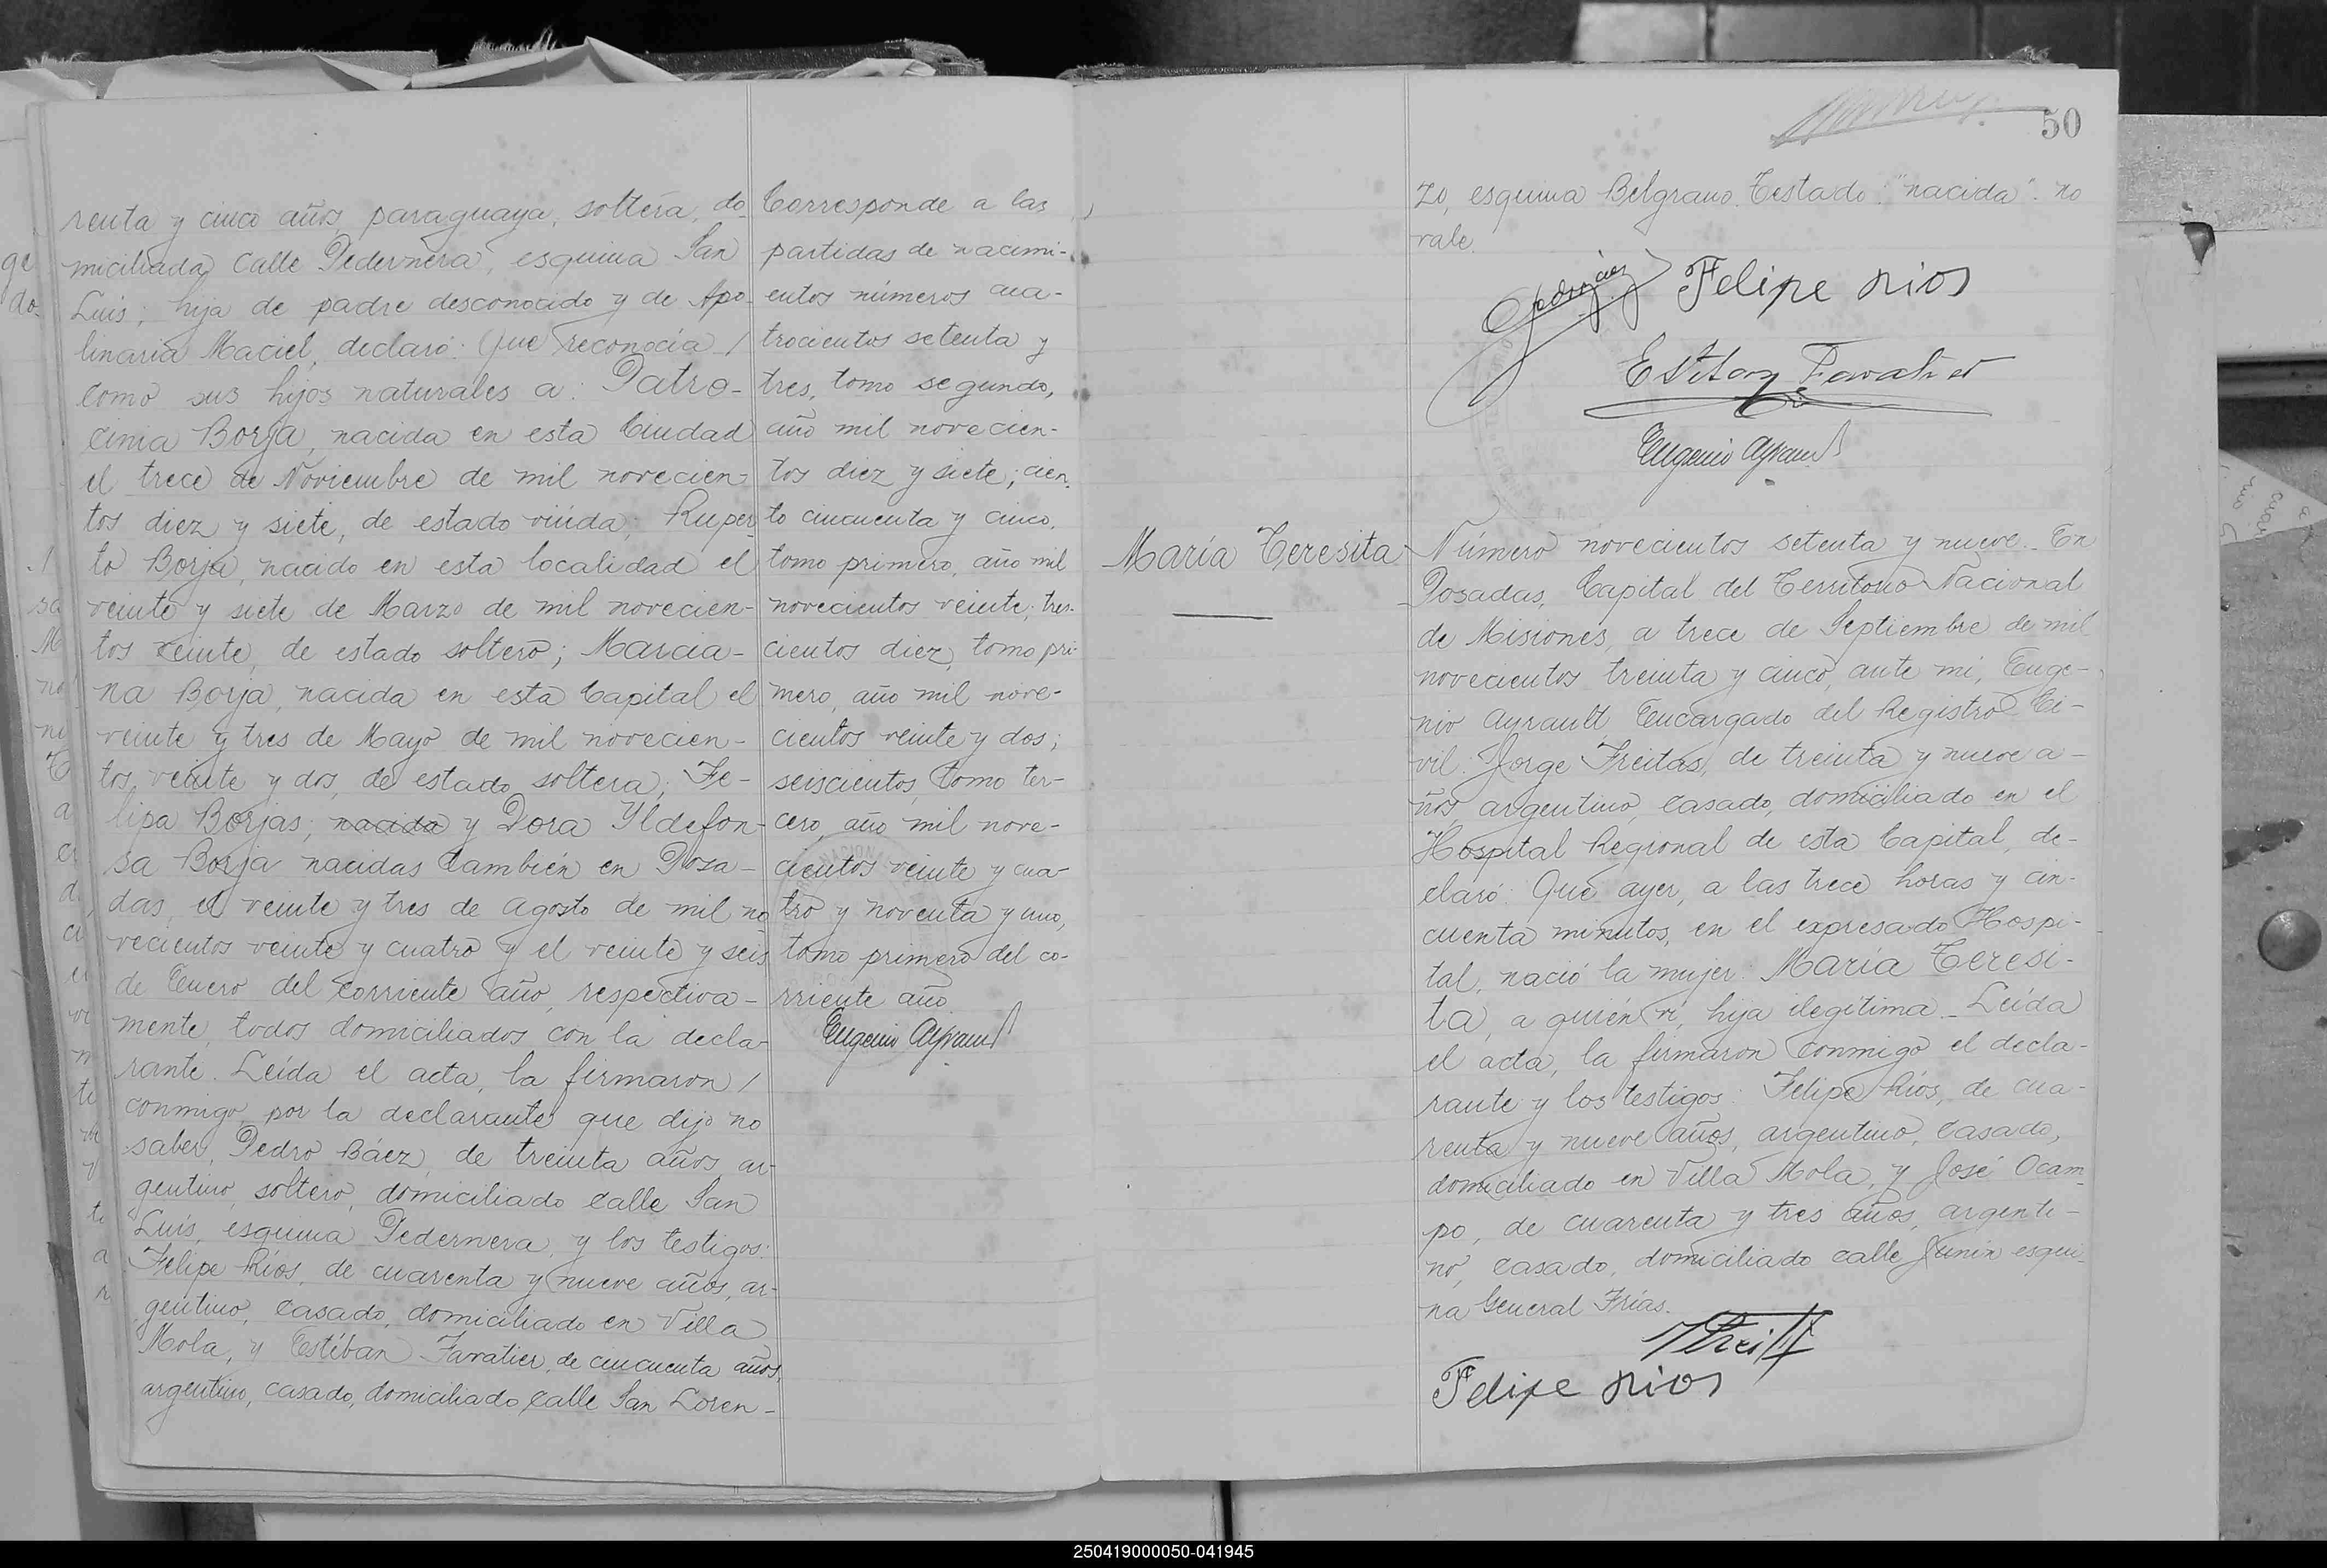 renta y cinco años paraguaya, soltera, do-
miciliada calle Pedernera, esquina San
Luis; hija de padre desconocido y de Apo-
linaria Maciel, declaró: Que reconocía /
como sus hijos naturales a: Patro-
cinia Borja, nacida en esta Ciudad
el trece de Noviembre de mil novecien-
tos diez y siete, de estado viúda; Ruper-
to Borja, nacido en esta localidad el
veinte y siete de Marzo de mil novecien-
tos veinte, de estado soltero; Marcia-
na Borja, nacida en esta Capital el
veinte y tres de Mayo de mil novecien-
tos veinte y dos, de estado soltera; Fe-
lipa Borjas, nacida y Dora Yldefon-
sa Borja nacidas también en Posa-
das, el veinte y tres de Agosto de mil no-
vecientos veinte y cuatro y el veinte y seis
de Enero del corriente año, respectiva-
mente, todos domiciliados con la decla-
rante. Leída el acta, la firmaron /
conmigo, por la declarante que dijo no
saber, Pedro Báez, de treinta años, ar-
gentino, soltero, domiciliado calle San
Luis, esquina Pedernera, y los testigos:
Felipe Ríos, de cuarenta y nueve años, ar-
gentino, casado, domiciliado en Villa
Mola, y Estéban Favatier, de cincuenta años,
argentino, casado, domiciliado calle San Loren-
Corresponde a las
partidas de nacimi-
entos números cua-
trocientos setenta y
tres, tomo segundo,
año mil novecien-
tos diez y siete; cien-
to cincuenta y cinco,
tomo primero, año mil
novecientos veinte; tres-
cientos diez, tomo pri-
mero, año mil nove-
cientos veinte y dos;
seiscientos, tomo ter-
cero, año mil nove-
cientos veinte y cua-
tro y noventa y uno,
tomo primero del co-
rriente año
Eugenio Ayrault
50
zo, esquina Belgrano. Testado: "nacida". no
vale.
Felipe Rios
Esteban Favatier
Eugenio Ayrault
María Teresita
Número novecientos setenta y nueve. En
Posadas, Capital del Territorio Nacional
de Misiones, a trece de Septiembre de mil
novecientos treinta y cinco, ante mi, Euge-
nio Ayrault, Encargado del Registro Ci-
vil: Jorge Freitas, de treinta y nueve a-
ños, argentino, casado, domiciliado en el
Hospital Regional de esta Capital, de-
claró: Que ayer, a las trece horas y cin-
cuenta minutos, en el expresado Hospi-
tal, nació la mujer: María Teresi-
ta, a quién vi, hija ilegítima. Leída
el acta, la firmaron conmigo el decla-
rante y los testigos: Felipe Ríos, de cua-
renta y nueve años, argentino, casado,
domiciliado en Villa Mola, y José Ocam-
po, de cuarenta y tres años, argenti-
no, casado, domiciliado calle Junín esqui-
na General Frías.
Felipe Rios
250419000050-041945